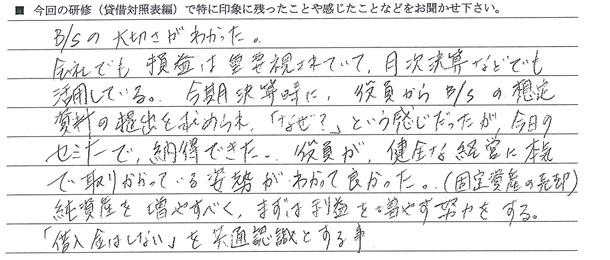 ■ 今回の研修（貸借対照表編）で特に印象に残ったことや感じたことなどをお聞かせ下さい。
B/Sの大切さがわかった。
会社でも損益は重要視されていて、月次決算などでも
活用している。今期決算時に、役員からB/Sの想定
資料の提出を求められ、「なぜ?」という感じだったが、今日の
セミナーで、納得できた。役員が、健全な経営に本気
で取りかかっている姿勢がわかって良かった。(固定資産の売却)
純資産を増やすべく、まずは利益を増やす努力をする。
「借入金はしない」を共通認識とする事